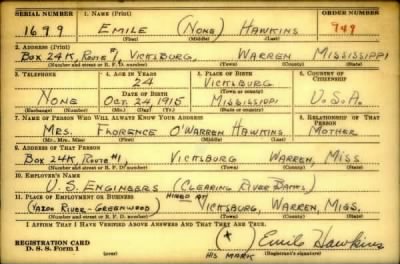 SERIAL NUMBER 1. NAME (Print) ORDER NUMBER
1699 EMILE (NONE) HAWKINS 949
(First) (Middle) (Last)
2. ADDRESS (Print)
BOX 24K, ROUTE #1, VICKSBURG, WARREN MISSISSIPPI
(Number and street or R. F. D. number) (Town) (County) (State)
3. TELEPHONE 4. AGE IN YEARS 5. PLACE OF BIRTH 6. COUNTRY OF CITIZENSHIP
24 VICKSBURG
DATE OF BIRTH (Town or county)
NONE OCT. 24, 1915 MISSISSIPPI U.S.A.
(Exchange) (Number) (Mo.) (Day) (Yr.) (State or country)
7. NAME OF PERSON WHO WILL ALWAYS KNOW YOUR ADDRESS 8. RELATIONSHIP OF THAT PERSON
MRS. FLORENCE O'WARREN HAWKINS MOTHER
(Mr., Mrs., Miss) (First) (Middle) (Last)
9. ADDRESS OF THAT PERSON
BOX 24K, ROUTE #1, VICKSBURG WARREN, MISS
(Number and street or R. F. D. number) (Town) (County) (State)
10. EMPLOYER'S NAME
U.S. ENGINEERS (CLEARING RIVER BANKS)
11. PLACE OF EMPLOYMENT OR BUSINESS HIRED AT
(YAZOO RIVER-GREENWOOD) VICKSBURG, WARREN, MISS.
(Number and street or R. F. D. number) (Town) (County) (State)
I AFFIRM THAT I HAVE VERIFIED ABOVE ANSWERS AND THAT THEY ARE TRUE.
REGISTRATION CARD (X) Emile Hawkins
D. S. S. Form 1 HIS MARK (Registrant's signature)